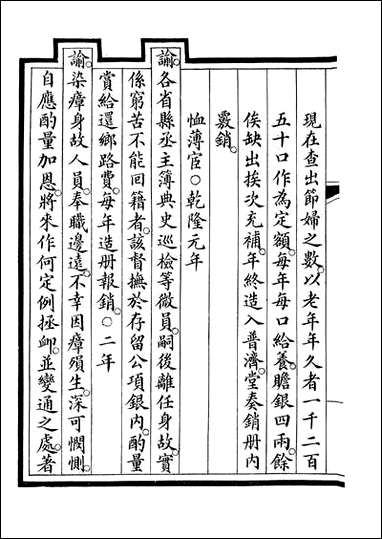 現在查出節婦之數。以老年年久者一千二百
五十口作為定額。每年每口給養贍銀四兩。餘
俟缺出挨次充補。年終造入普濟堂奏銷册內
覈銷。
恤薄宦○乾隆元年
諭。各省縣丞主簿典史巡檢等微員。嗣後離任身故。實
係窮苦不能回籍者。該督撫於存留公項銀內。酌量
賞給還鄉路費。每年造册報銷。○二年
諭。染瘴身故人員。奉職邊遠。不幸因瘴殞生。深可憫惻。
自應酌量加恩。將來作何定例拯卹。並變通之處。著